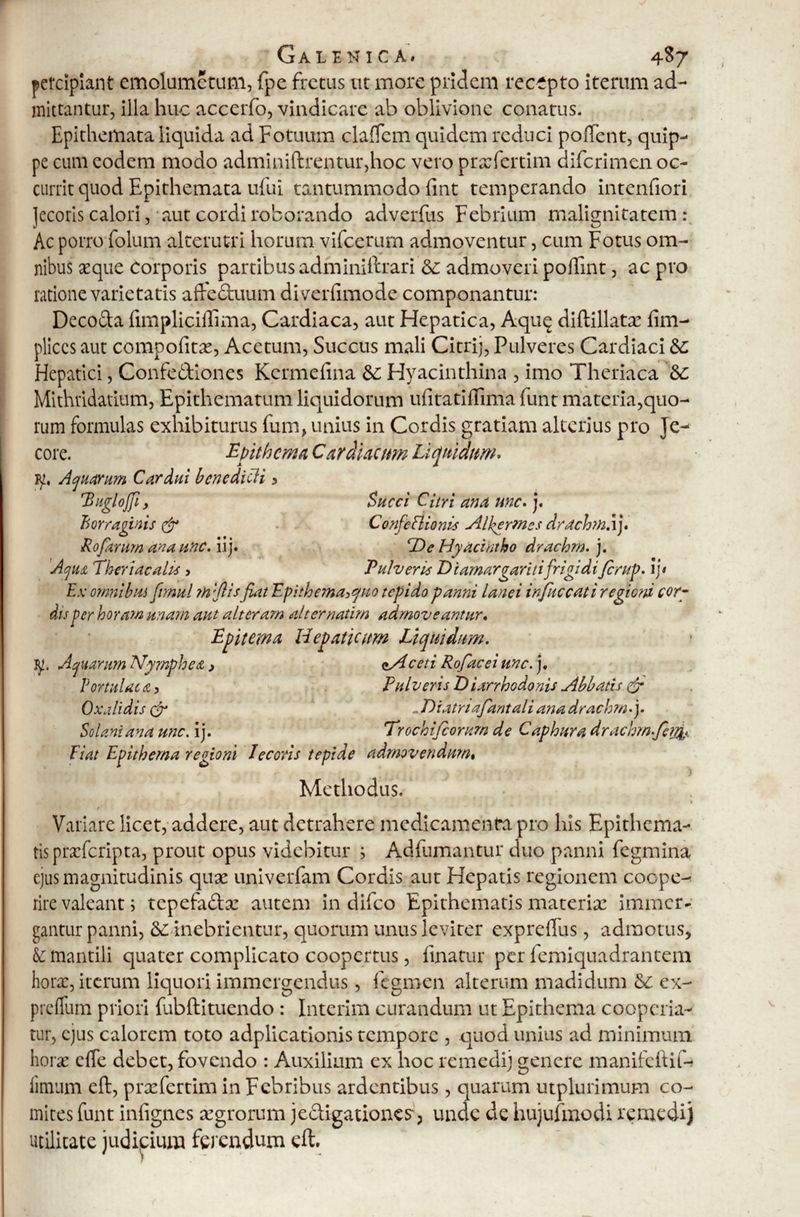 GALENICA. 487
percipiant emolumētum, ſpe fretus ut more pridem recepto iterum ad-
mittantur, illa huc accerſo, vindicare ab oblivione conatus.
Epithemata liquida ad Fotuum claſſem quidem reduci poſſent, quip-
pe cum eodem modo adminiſtrentur,hoc vero præſertim diſcrimen oc-
currit quod Epithemata uſui tantummodo ſint temperando intenſiori
Jecoris calori, aut cordi roborando adverſus Febrium malignitatem:
Ac porro ſolum alterutri horum viſcerum admoventur, cum Fotus om-
nibus æque corporis partibus adminiſtrari & admoveri poſſint, ac pro
ratione varietatis affectuum diverſimode componantur:
Decocta ſimpliciſſima, Cardiaca, aut Hepatica, Aquę diſtillatæ ſim-
plices aut compoſitæ, Acetum, Succus mali Citrij, Pulveres Cardiaci &
Hepatici, Confectiones Kermeſina & Hyacinthina, imo Theriaca &
Mithridatium, Epithematum liquidorum uſitatiſſima ſunt materia,quo-
rum formulas exhibiturus ſum, unius in Cordis gratiam alterius pro Je-
core. Epithema Cardiacum Liquidum.
℞. Aquarum Cardui benedicti,
Bugloſſi, Succi Citri ana unc. j.
Borraginis & Confectionis Alkermes drachm.ij.
Roſarum ana unc. iij. De Hyacintho drachm. j.
Aquæ Theriacalis, Pulveris Diamargariti frigidi ſcrup. ij.
Ex omnibus ſimul miſtis fiat Epithema,quo tepido panni lanei inſuccati regioni cor-
dis per horam unam aut alteram alternatim admoveantur.
Epitema Hepaticum Liquidum.
℞. Aquarum Nympheæ, Aceti Roſacei unc. j.
Portulacæ, Pulveris Diarrhodonis Abbatis &
Oxalidis & Diatriaſantali ana drachm. j.
Solani ana unc. ij. Trochiſcorum de Caphura drachm.ſemẜ.
Fiat Epithema regioni Iecoris tepide admovendum.
Methodus.
Variare licet, addere, aut detrahere medicamenta pro his Epithema-
tis præſcripta, prout opus videbitur ; Adſumantur duo panni ſegmina
ejus magnitudinis quæ univerſam Cordis aut Hepatis regionem coope-
rire valeant ; tepefactæ autem in diſco Epithematis materiæ immer-
gantur panni, & inebrientur, quorum unus leviter expreſſus, admotus,
& mantili quater complicato coopertus, ſinatur per ſemiquadrantem
horæ, iterum liquori immergendus, ſegmen alterum madidum & ex-
preſſum priori ſubſtituendo : Interim curandum ut Epithema cooperia-
tur, ejus calorem toto adplicationis tempore, quod unius ad minimum
horæ eſſe debet, fovendo : Auxilium ex hoc remedij genere manifeſtiſ-
ſimum eſt, præſertim in Febribus ardentibus, quarum utplurimum co-
mites ſunt inſignes ægrorum jectigationes, unde de hujuſmodi remedij
utilitate judicium ferendum eſt.